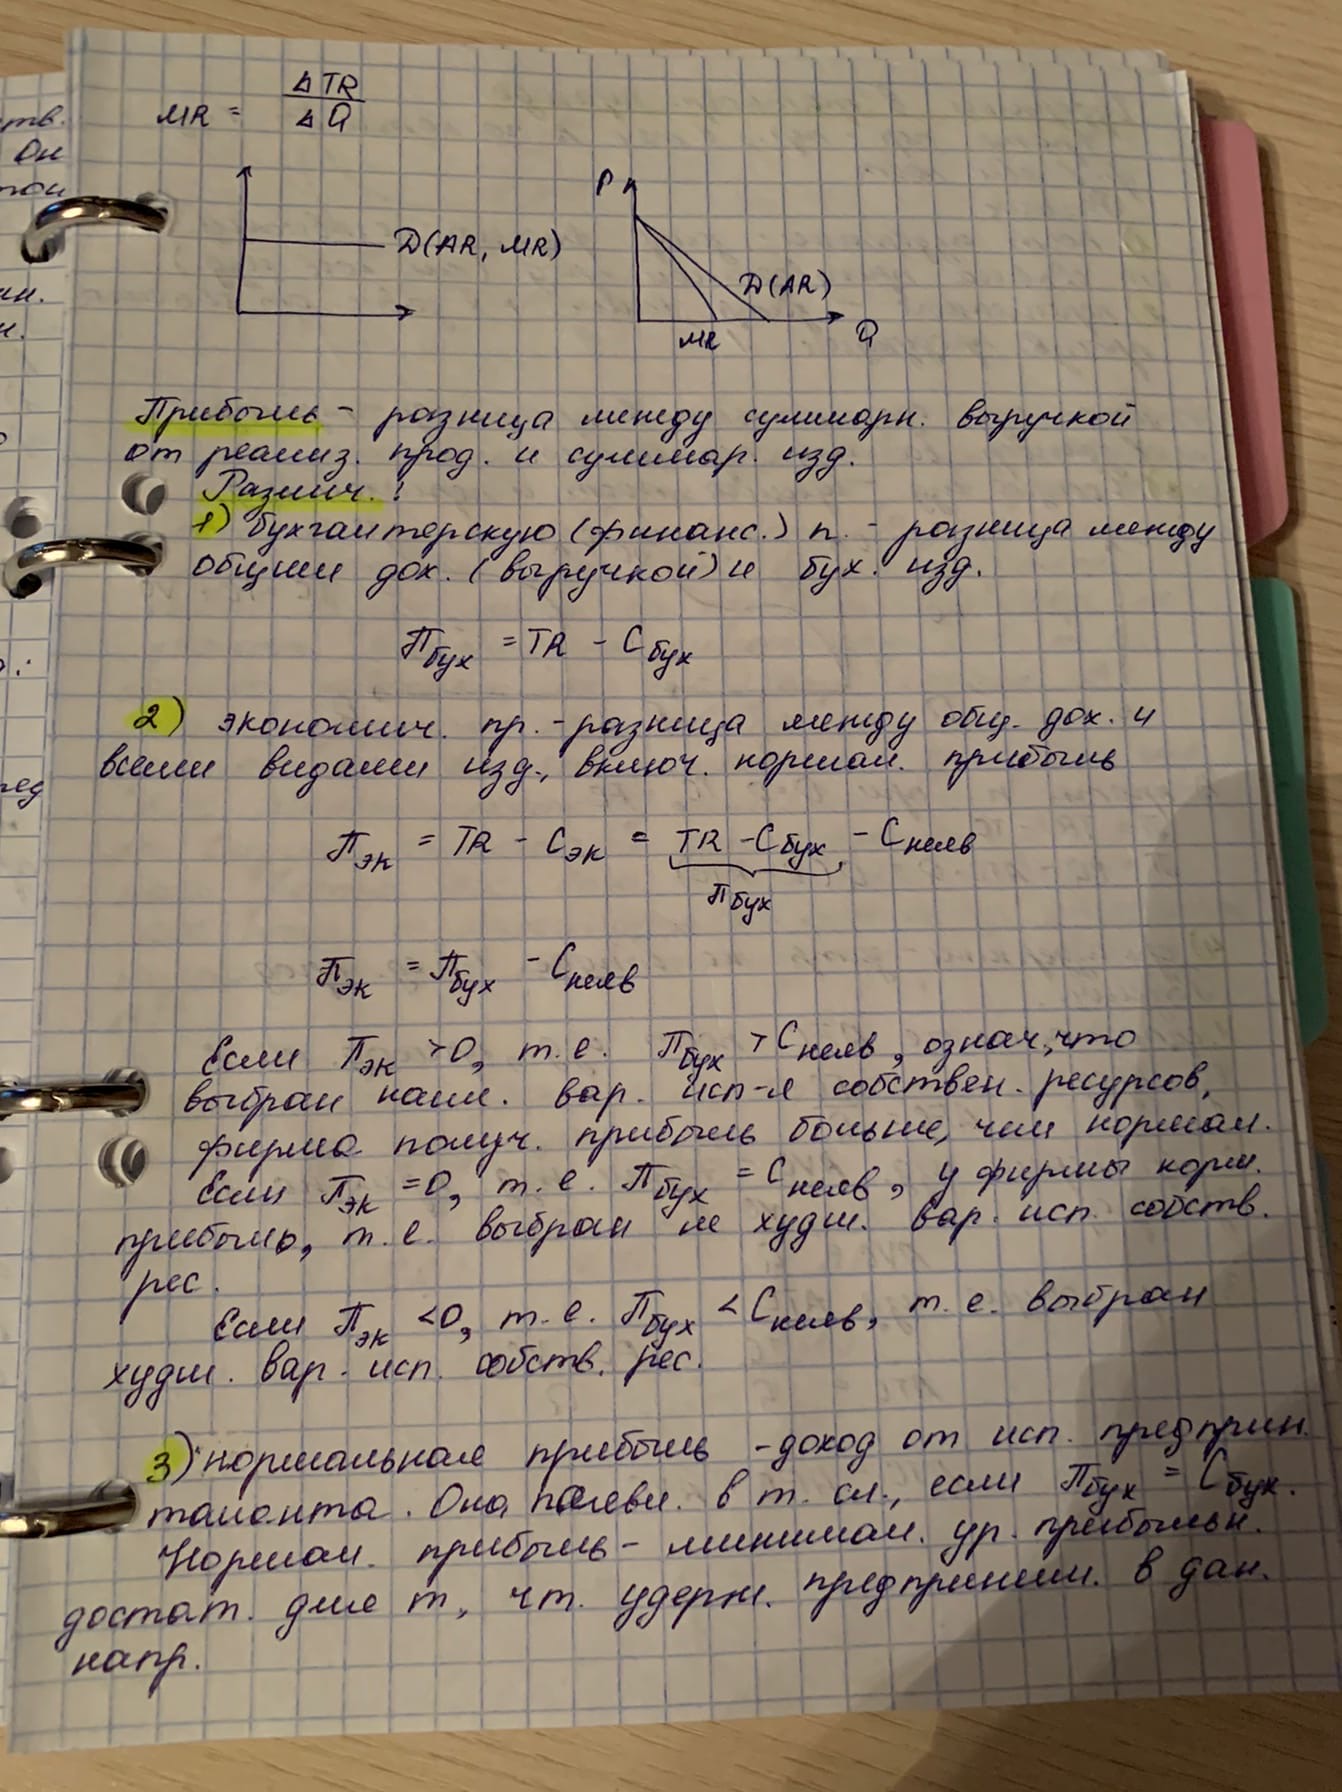 MR = ΔTR / ΔQ
D(AR, MR)
P
D(AR)
MR
Q
Прибыль - разница между суммарн. выручкой
от реализ. прод. и суммар. изд.
Различ. :
1) бухгалтерскую (финанс.) п. - разница между
общим дох. (выручкой) и бух. изд.
Пбух = TR - Cбух
2) экономич. пр. - разница между общ. дох. и
всеми видами изд., включ. нормал. прибыль
Пэк = TR - Cэк = TR - Cбух - Cнеяв
Пбух
Пэк = Пбух - Cнеяв
Если Пэк > 0, т.е. Пбух > Cнеяв, означ, что
выбран наил. вар. исп-я собствен. ресурсов,
фирма получ. прибыль больше, чем нормал.
Если Пэк = 0, т.е. Пбух = Cнеяв, у фирмы норм.
прибыль, т.е. выбран не худш. вар. исп. собств.
рес.
Если Пэк < 0, т.е. Пбух < Cнеяв, т.е. выбран
худш. вар. исп. собств. рес.
3) нормальная прибыль - доход от исп. предприн.
таланта. Она в т. сл., если Пбух = Cбух.
Нормал. прибыль - минимал. ур. прибыльн.
достат. для т, чт. удерж. предприним. в дан.
напр.
тв.
Он